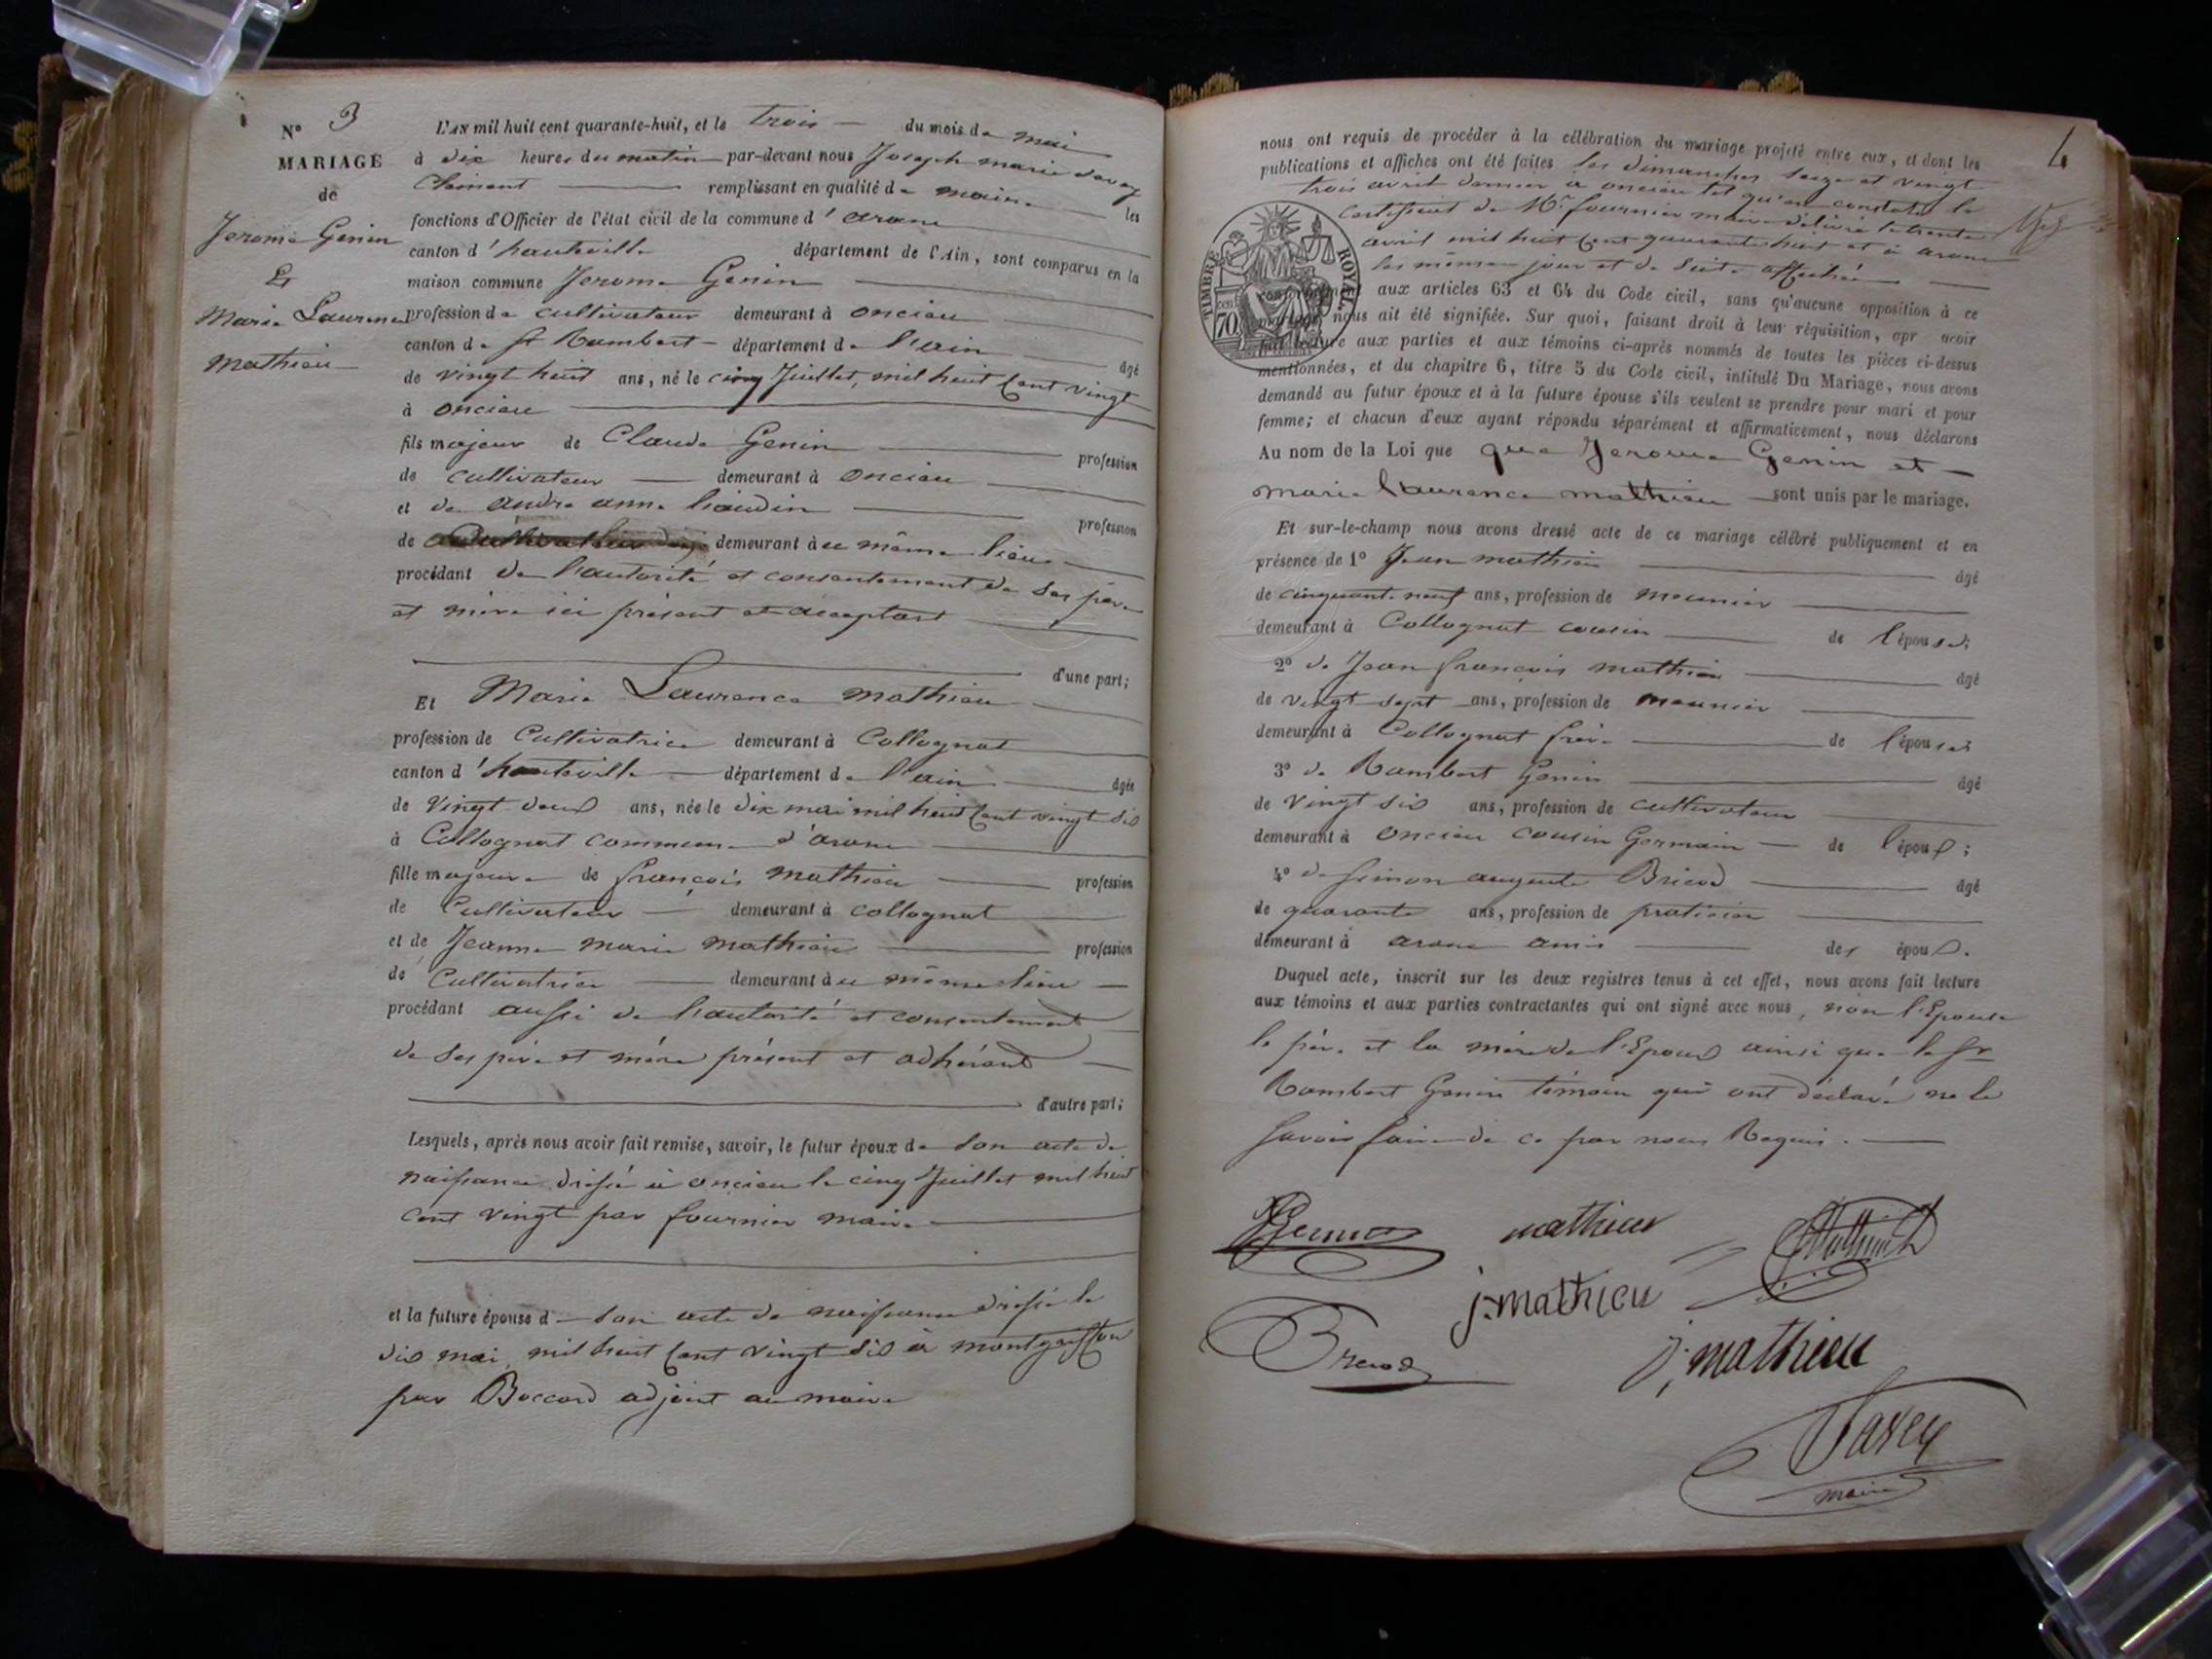 N° 3
MARIAGE
de
Jerome Genin
Et
Marie Laurence
Mathieu
L'AN mil huit cent quarante-huit, et le trois du mois de mai
à dix heures du matin par-devant nous Joseph marie Savey
Clément remplissant en qualité de maire les
fonctions d'Officier de l'état civil de la commune d'arane
canton d'hauteville département de l'Ain, sont comparus en la
maison commune Jerome Genin
profession de cultivateur demeurant à oncieu
canton de St Rambert département de l'ain âgé
de vingt huit ans, né le cinq Juillet, mil huit Cent vingt
à oncieu
fils majeur de Claude Genin profession
de cultivateur demeurant à oncieu
et de andre anne liaudin profession
de demeurant à u même lieu
procédant de l'autorité et consentement de ses père
et mère ici présent et acceptant
d'une part;
Et Marie Laurence mathieu
profession de Cultivatrice demeurant à Collognat
canton d'hauteville département de l'ain âgée
de vingt deux ans, née le dix mai mil huit Cent vingt six
à Collognat commune d'arane
fille majeure de françois mathieu profession
de Cultivateur demeurant à collognat
et de Jeanne marie mathieu profession
de Cultivatrice demeurant à u même lieu
procédant aussi de l'autorité et consentement
de ses père et mère présent et adhérant
d'autre part;
Lesquels, après nous avoir fait remise, savoir, le futur époux de son acte de
naissance dressé à oncieu le cinq Juillet mil huit
cent vingt par fournier maire
et la future épouse d son acte de naissance dressé le
dix mai mil huit Cent vingt six à montgriffon
par Boccard adjoint au maire
4
nous ont requis de procéder à la célébration du mariage projeté entre eux, et dont les
publications et affiches ont été faites les dimanches seize et vingt
trois avril dernier à oncieu tel qu'en constate le
certificat de Mr fournier maire délivré le trente
avril mil huit Cent quarante huit et à arane
les mêmes jour et de suite affichés
TIMBRE ROYAL
70 cent
conformément aux articles 63 et 64 du Code civil, sans qu'aucune opposition à ce
mariage nous ait été signifiée. Sur quoi, faisant droit à leur réquisition, apr avoir
fait lecture aux parties et aux témoins ci-après nommés de toutes les pièces ci-dessus
mentionnées, et du chapitre 6, titre 5 du Code civil, intitulé Du Mariage, nous avons
demandé au futur époux et à la future épouse s'ils veulent se prendre pour mari et pour
femme; et chacun d'eux ayant répondu séparément et affirmativement, nous déclarons
Au nom de la Loi que que Jerome Genin et
marie laurence mathieu sont unis par le mariage.
Et sur-le-champ nous avons dressé acte de ce mariage célébré publiquement et en
présence de 1° Jean mathieu âgé
de cinquante neuf ans, profession de meunier
demeurant à Collognat cousin de l'épouse;
2° de Jean françois mathieu âgé
de vingt sept ans, profession de meunier
demeurant à Collognat frère de l'épouse;
3° de Rambert Genin âgé
de vingt six ans, profession de cultivateur
demeurant à oncieu cousin Germain de l'époux;
4° de Simon auguste Bricod âgé
de quarante ans, profession de praticien
demeurant à arane amis des époux.
Duquel acte, inscrit sur les deux registres tenus à cet effet, nous avons fait lecture
aux témoins et aux parties contractantes qui ont signé avec nous, non l'Epouse
le père et la mère de l'Epoux ainsi que le Sr
Rambert Genin témoin qui ont déclaré ne le
savoir faire de ce par nous Requis.
Genin mathieu Mathieu
j. mathieu
Bricod
j. mathieu
Savey
maire